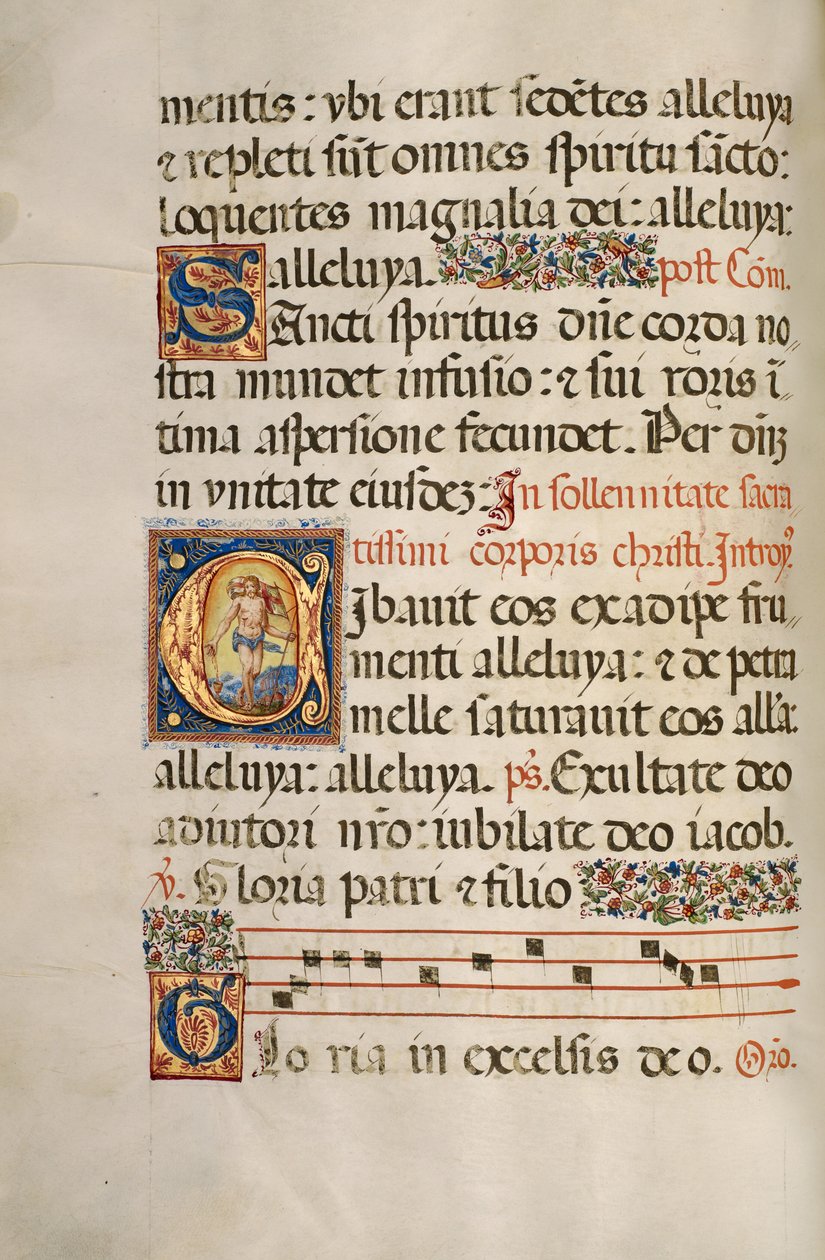 mentis: vbi erant sedētes alleluya
⁊ repleti sūt omnes spiritu sācto:
loquentes magnalia dei: alleluya:
alleluya. post Cōm.
SAncti spiritus dn̄e corda no„
stra mundet infusio: ⁊ sui roris ī„
tima aspersione fecundet. Per dn̄ꝫ
in vnitate eiusdeꝫ: In sollennitate sacra„
tissimi corporis christi. Introyꝰ.
CIbauit eos exadipe fru„
menti alleluya: ⁊ de petra
melle saturauit eos all'a:
alleluya: alleluya. ps̄. Exultate deo
adiutori nr̄o: iubilate deo iacob.
℣. Gloria patri ⁊ filio
GLo ria in excelsis deo. Orō.